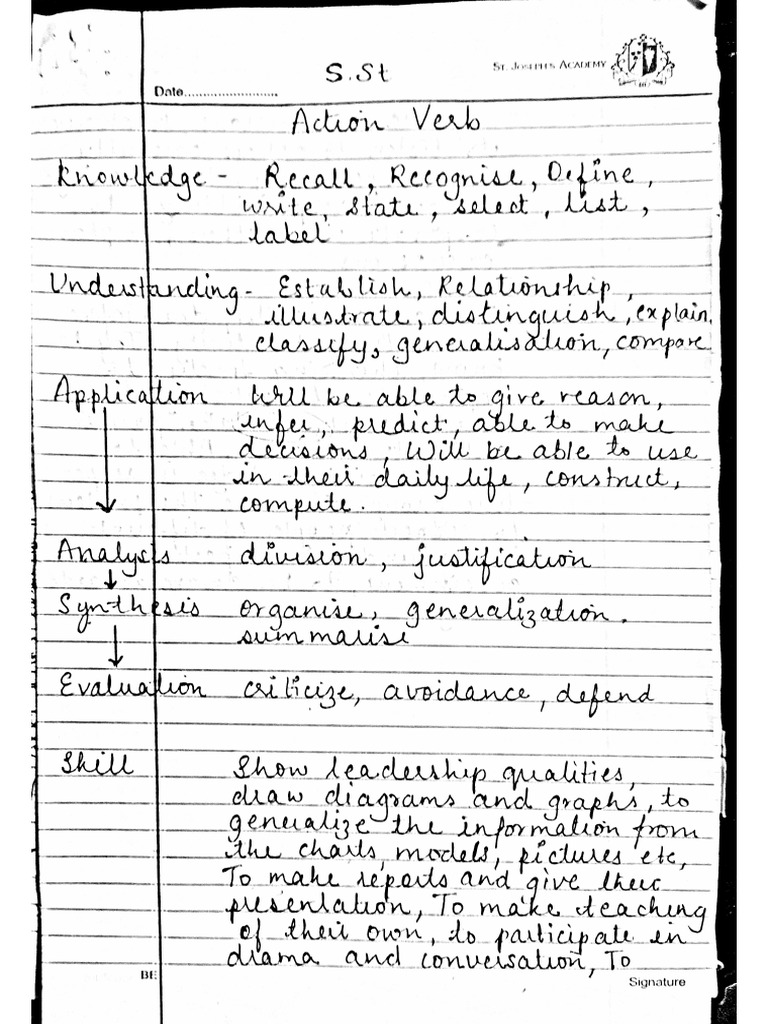 S.St
ST. JOSEPH'S ACADEMY
Date............................
Action Verb
Knowledge - Recall, Recognise, Define,
write, state, select, list,
label
Understanding - Establish, Relationship,
illustrate, distinguish, explain,
classify, generalisation, compare
Application Will be able to give reason,
infer, predict, able to make
decisions, Will be able to use
in their daily life, construct,
compute.
Analysis division, justification
Synthesis organise, generalization.
summarise
Evaluation criticize, avoidance, defend
Skill Show leadership qualities,
draw diagrams and graphs, to
generalize the information from
the charts, models, pictures etc,
To make reports and give their
presentation, To make teaching
of their own, to participate in
drama and conversation, To
BE
Signature